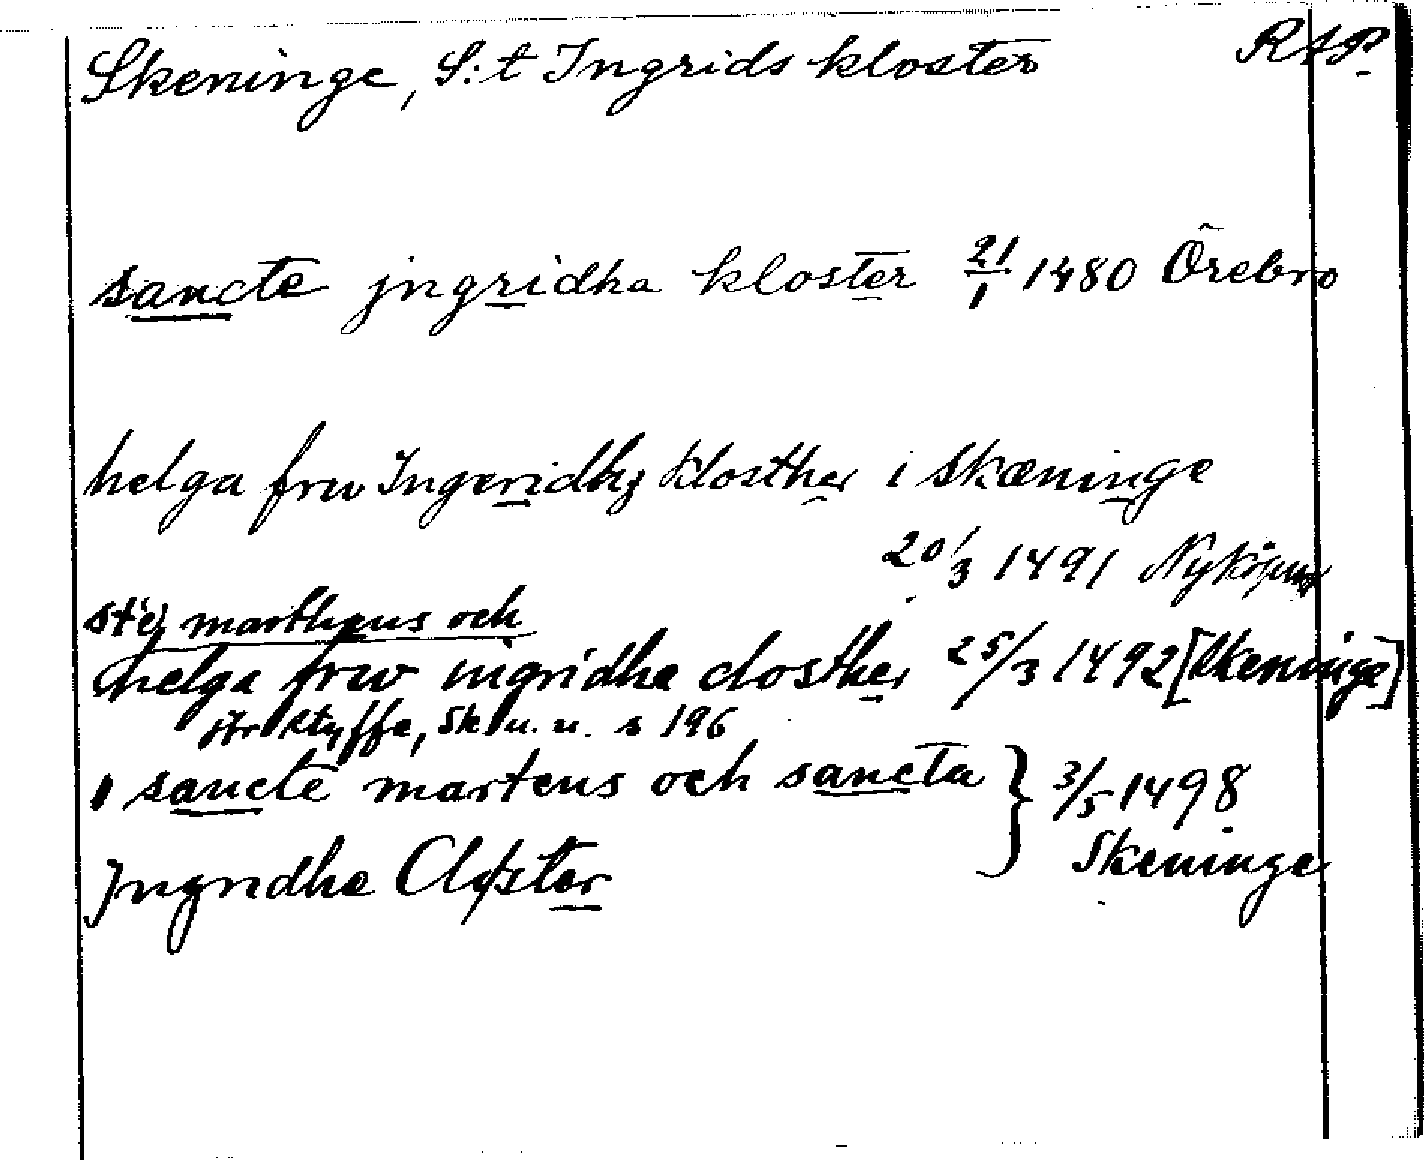 Skeninge, S:t Ingrids kloster RAP.
sancte jngridha kloster 21/1 1480 Örebro
helga frw Ingeridhz klosther i skæninge
20/3 1491 Nyköping
marthens och
helga frw ingridhe closther 25/3 1492 [Skeninge]
jfr Styffe, Sk. u. u. s 196
i sancte martens och sancta } 3/5 1498
Jngridhe Closter Skeninge